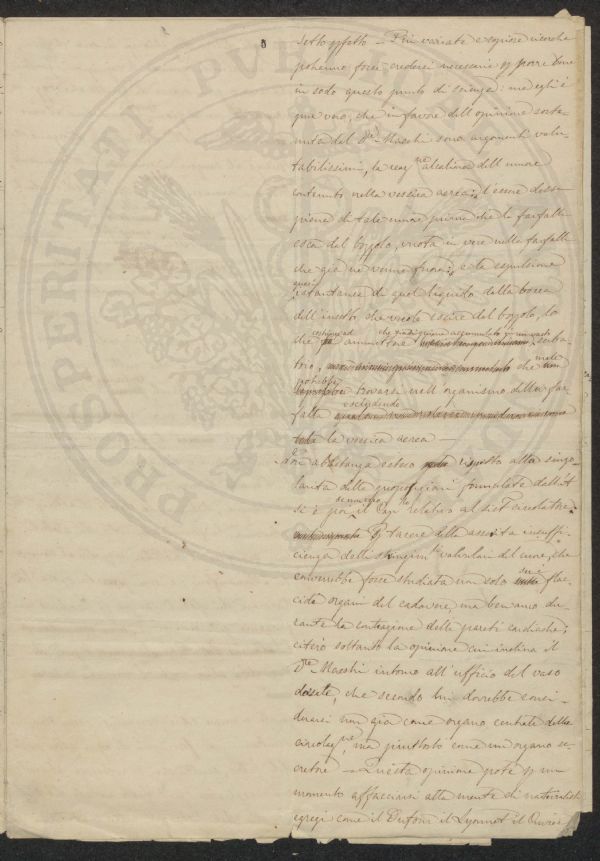 detto effetto — Più variate e copiose ricerche
potranno forse credersi necessarie per porre bene
in sodo questo punto di scienza: ma egli è
pur vero, che in favore dell'opinione soste-
nuta dal Dre Maestri sono argomenti valu-
tabilissimi, la reazne alcalina dell'umore
contenuto nella vescica aerea; l'essere dessa
piena di tale umore, prima che la farfalla
esca dal bozzolo, vuota in vece nella farfalla
che già ne venne fuori; e la espulsione
quasi
istantanea di quel liquido dalla bocca
dell'insetto, che vuole escire dal bozzolo, lo
che ammettere serba-
torio, che male
potrebbe trovarsi nell'organismo della far-
falla escludendo
la vescica aerea —
abbastanza esteso rispetto alla singo-
larità delle proposizioni formulate dall'A
si è poi il Capo relativo al sist. circolatore.
Per tacere della asserita insuffi-
cienza delli valvolari del cuore, che
converrebbe forse studiata non solo sui fla-
cidi organi del cadavere, ma ben anco du-
rante la contrazione delle pareti cardiache;
citerò soltanto la opinione cui inclina il
Dre Maestri intorno all'ufficio del vaso
dorsale, che secondo lui dovrebbe consi-
derarsi non già come organo centrale della
circolazne, ma piuttosto come un organo se-
cretore — Questa opinione potè per un
momento affacciarsi alla mente di naturalisti
egregi come il Dufour il Lyonnet il Cuvier
PROSPERITATI PUBLICAE